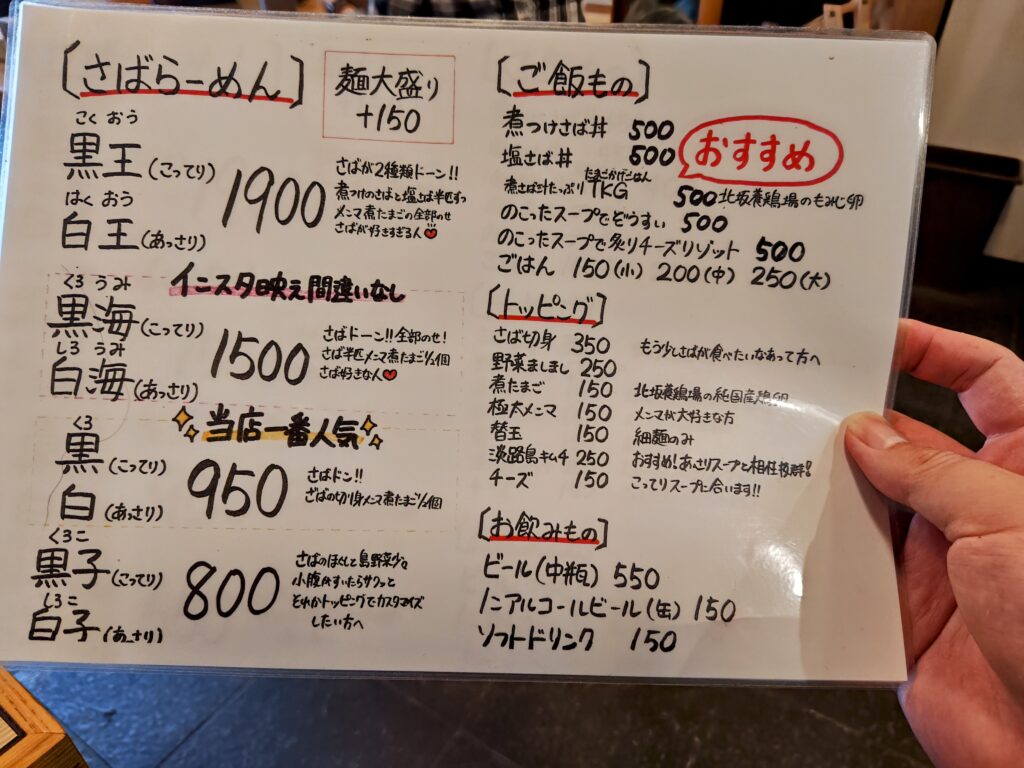 〔さばらーめん〕
麺大盛り
+150
こく おう
黒王(こってり)
はく おう
白王(あっさり)
1900
さばが2種類ドーン!!
煮つけのさばと塩さば半匹ずつ
メンマ煮たまごの全部のせ
さばが好きすぎる人♥
インスタ映え間違いなし
くろ うみ
黒海(こってり)
しろ うみ
白海(あっさり)
1500
さばドーン!!全部のせ!
さば半匹メンマ煮たまご1/2個
さば好きな人♥
当店一番人気
くろ
黒(こってり)
白(あっさり)
950
さばドン!!
さばの切り身メンマ煮たまご1/2個
くろこ
黒子(こってり)
しろこ
白子(あっさり)
800
さばのほぐしと島野菜少々
小腹がすいたらサクッと
それかトッピングでカスタマイズ
したい方へ
〔ご飯もの〕
煮つけさば丼 500
塩さば丼 500
おすすめ
たまごかけごはん
煮さば汁たっぷりTKG 500 北坂養鶏場のもみじ卵
のこったスープでぞうすい 500
のこったスープで炙りチーズリゾット 500
ごはん 150(小) 200(中) 250(大)
〔トッピング〕
さば切身 350 もう少しさばが食べたいなあって方へ
野菜ましまし 250
煮たまご 150 北坂養鶏場の純国産鶏卵
極太メンマ 150 メンマが大好きな方
替玉 150 細麺のみ
淡路島キムチ 250 おすすめ!あっさりスープと相性抜群!
チーズ 150 こってりスープに合います!!
〔お飲みもの〕
ビール(中瓶) 550
ノンアルコールビール(缶) 150
ソフトドリンク 150